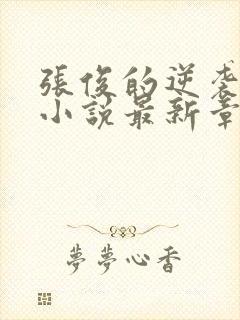 張俊的逆袭
小説最新章
夢夢心香